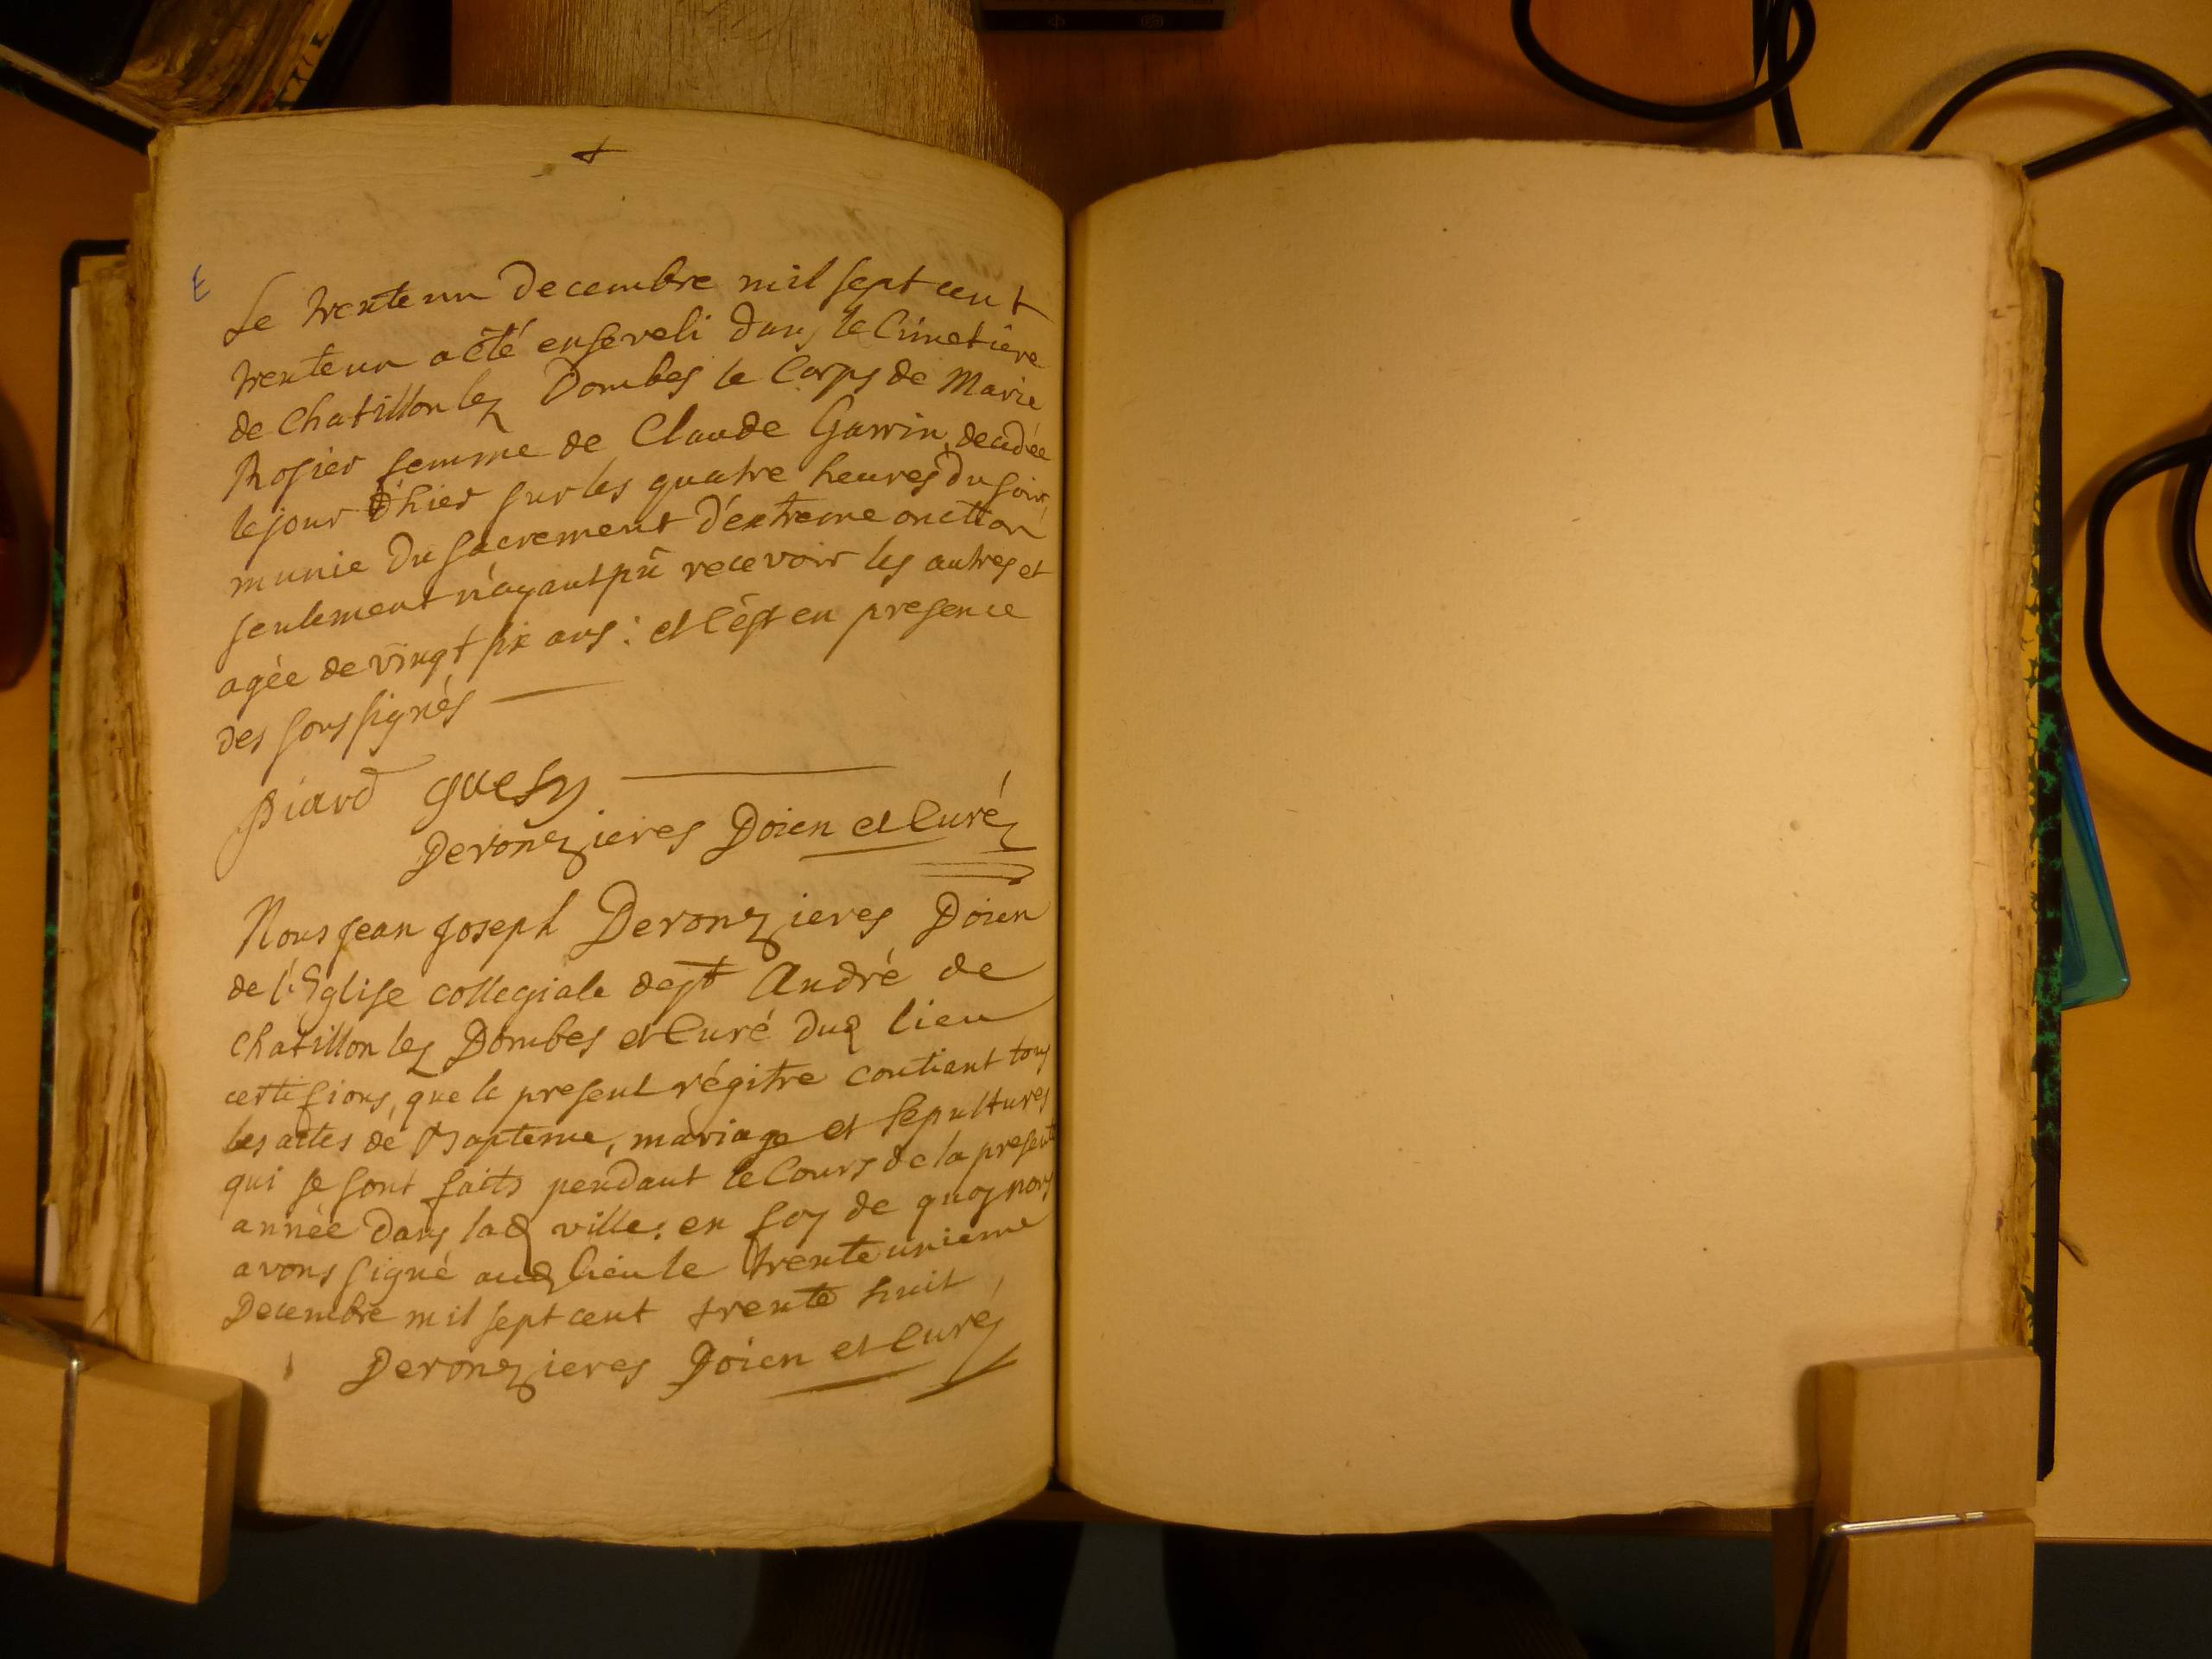 E
Le trente un Decembre mil sept cent
trente un a été enseveli dans le Cimetiére
de Chatillon lez Dombes le Corps de Marie
Rosier femme de Claude Gavrin decedée
le jour d'hier sur les quatre heures du soir,
munie du sacrement d'extreme onction
seulement n'ayant pû recevoir les autres et
agée de vingt six ans : et c'est en presence
des soussignés
piard guesy
Deronzieres Doien et Curé
Nous jean joseph Deronzieres Doien
de l'Eglise collegiale de st André de
chatillon lez Dombes et Curé dud lieu
certifions, que le present régitre contient tous
les actes de Bapteme, mariage et sepultures
qui se sont faits pendant le Cours de la presente
année dans lad ville : en foy de quoy nous
avons signé aud lieu le trente unieme
Decembre mil sept cent trente huit
Deronzieres Doien et Curé